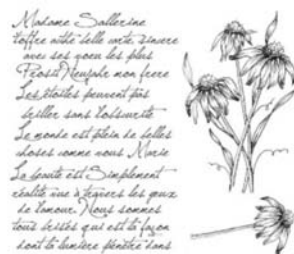 Madame Sallerine
t'offre cette belle carte, sincere
avec ses voeux les plus
Prosit Neujahr mon frere
Les étoiles peuvent pas
briller sans l'obscurité
Le monde est plein de belles
choses comme vous Marie
La beauté est Simplement
réalité vue à travers les yeux
de l'amour. Nous sommes
tous brisés qui est la façon
dont la lumière pénètre dans